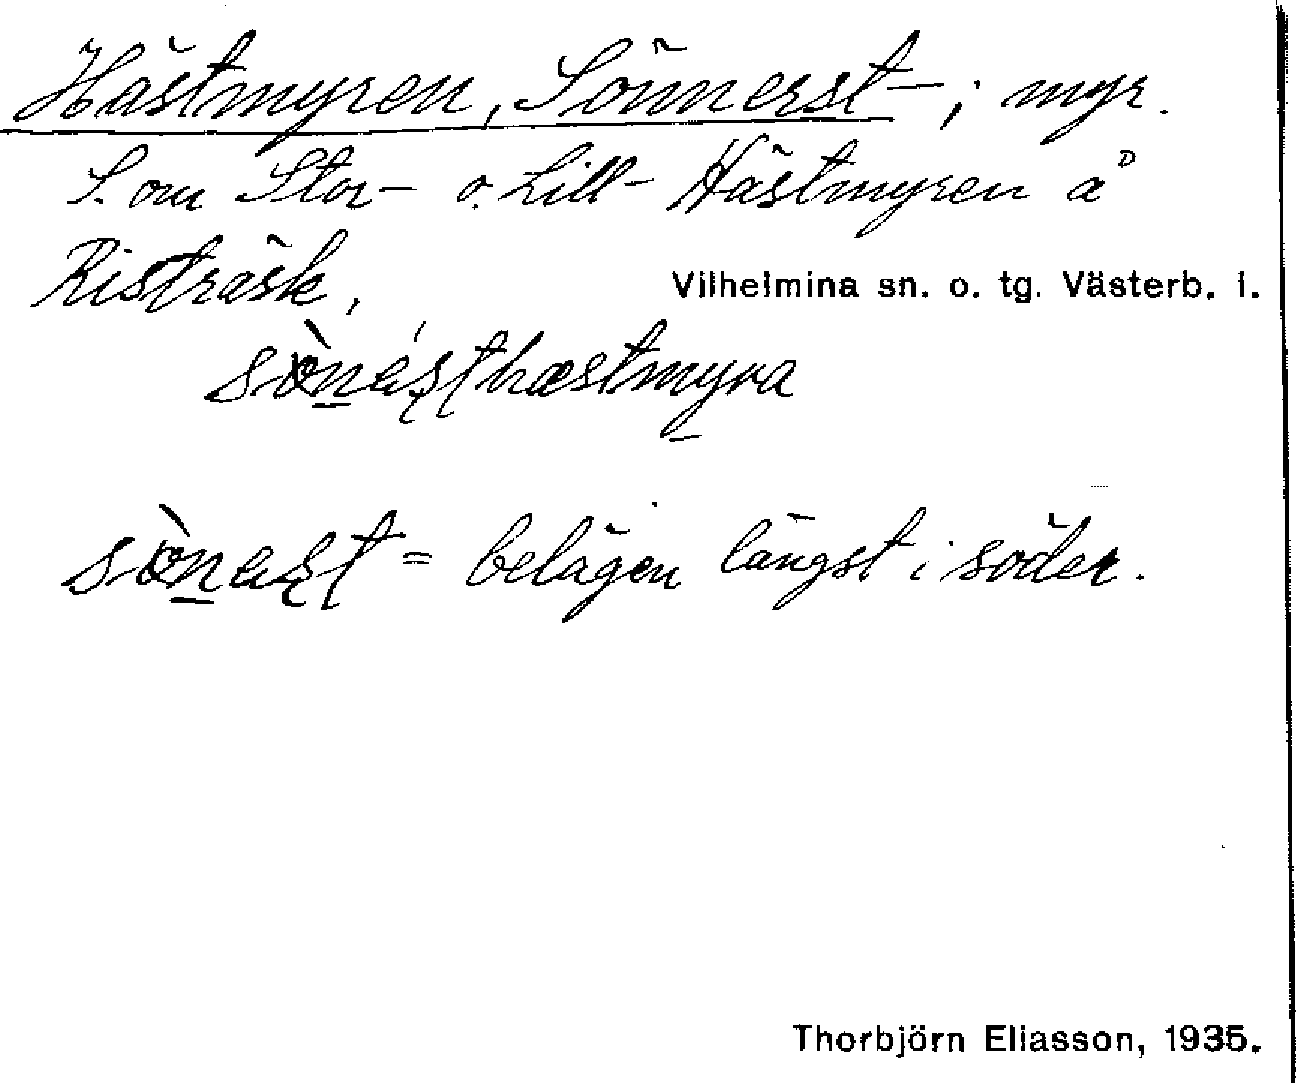 Hästmyren, Sönnerst-; myr.
S. om Stor- o. Lill- Hästmyren å
Risträsk,
Vilhelmina sn. o. tg. Västerb. l.
sònéşthæstmyra
sònest = belägen längst i söder.
Thorbjörn Eliasson, 1935.